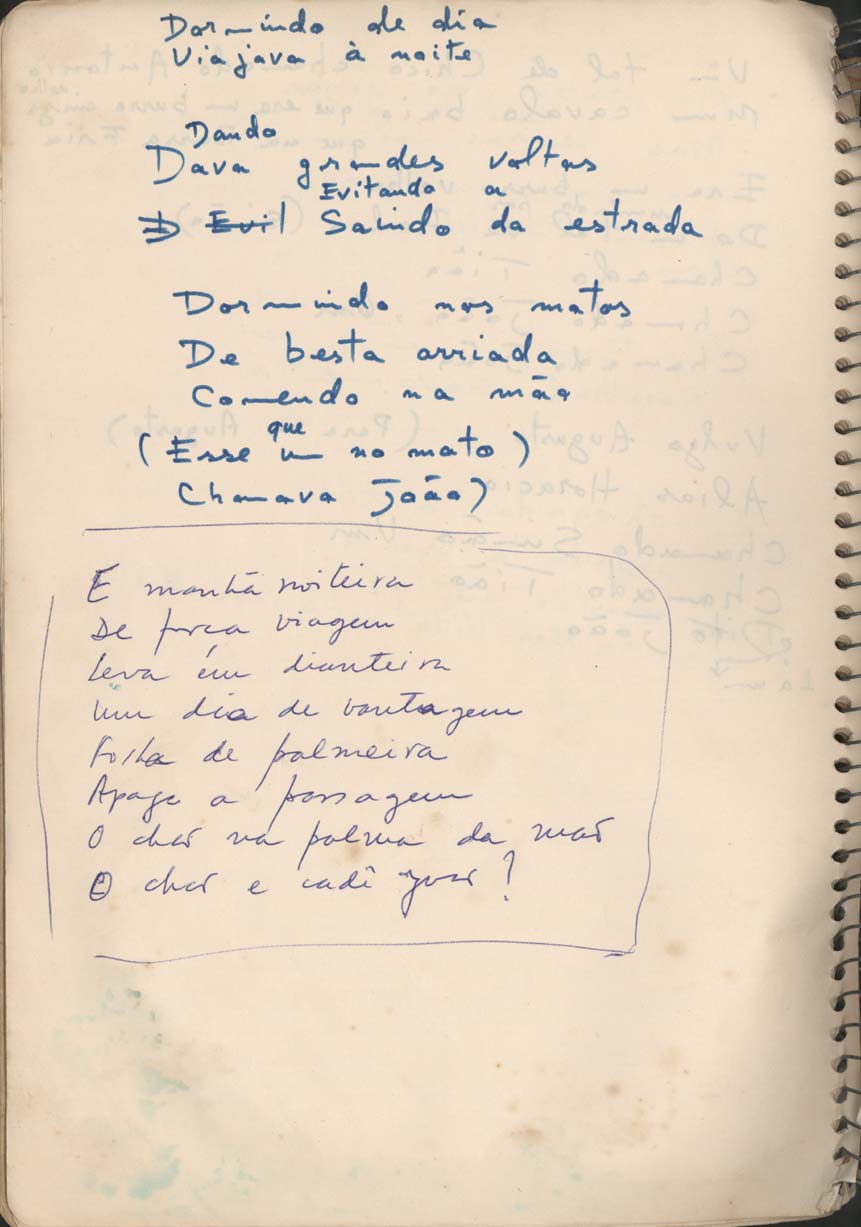 Dormindo de dia
Viajava à noite
Dando
Dava grandes voltas
Evitando a
D Evil Saindo da estrada
Dormindo nos matos
De besta arriada
Comendo na mão
que
(Esse um no mato)
Chamava João)
E manhã noiteira
De força viagem
Leva em dianteira
Um dia de vantagem
Folha de palmeira
Apaga a passagem
O chão na palma da mão
O chão e cadê